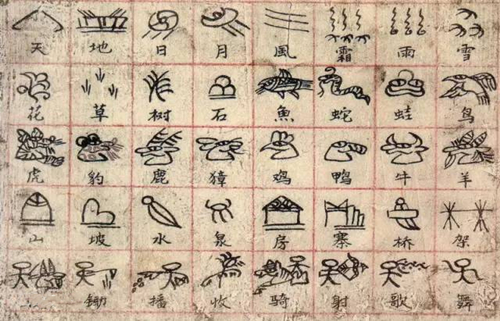 天 地 日 月 風 霜 雨 雪
花 草 树 石 魚 蛇 蛙 鸟
虎 豹 鹿 獐 鸡 鸭 牛 羊
山 坡 水 泉 房 寨 桥 架
锄 播 收 骑 射 歌 舞